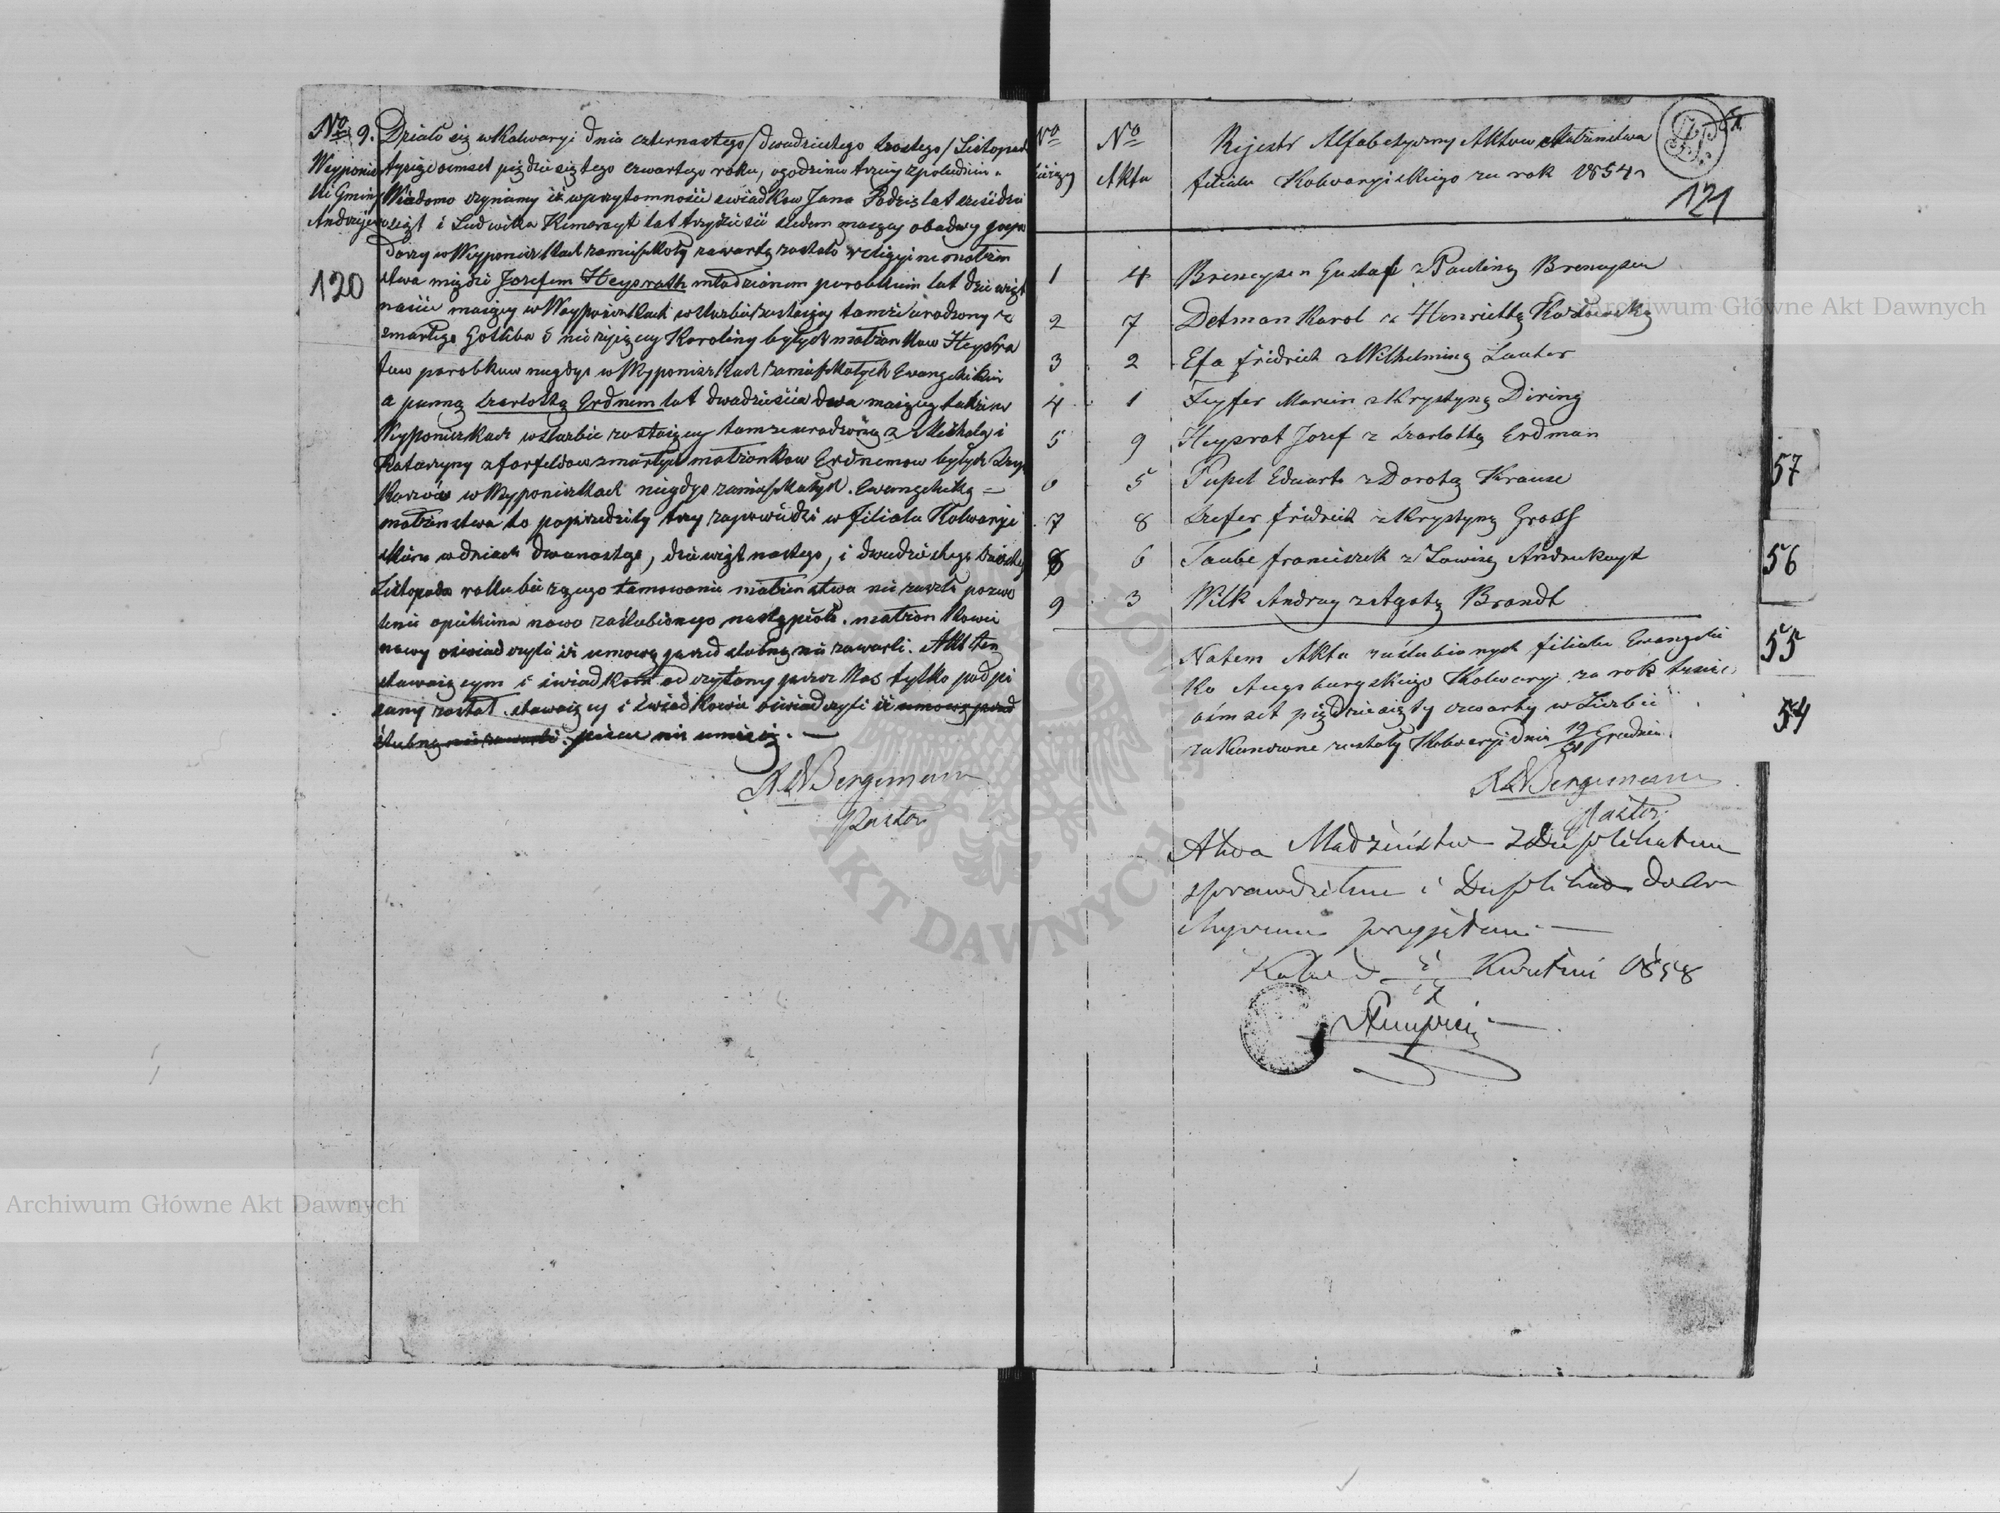 No 9.
Wyponisz
ki Gminy
Andrzejewo
120
Działo się w Kalwaryi dnia czternastego/dwudziestego szostego/Listopada
tysiąc osmset pięдziesiątego czwartego roku, o godzinie trzeciy z południa.
Wiadomo czynimy iż w przytomności swiadkow Jana lat sześćdzie
siąt i Ludwika Kimerayt lat trzydzieści siedem maiący obadwa gospo
darzy w Wyponiszkach zamieszkały zawarte zostało religijne małżen
stwo między Jozefem Heysrath młodzianem parobkiem lat dziewięt
nascie maiący w Wyponiszkach w służbie zostaiący tamże urodzony z
zmarłego Gotliba i nieżyiącey Karoliny byłych małżonkow Heysra
tow parobkow niegdys w Wyponiszkach zamieszkałych Ewangelikiem
a panną Szarlottą Erdmem lat dwadzieścia dwa maiącą także w
Wyponiszkach w służbie zostaiącey tamze urodzoną z Michała i
Katarzyny z zmarłych małżonkow Erdnemow byłych
w Wyponiszkach niegdys zamieszkałych. Ewangeliką =
małżenstwo to poprzedziły trzy zapowiedzi w filiale Kalwaryi
skim w dniach dwunastego, dziewiętnastego, i dwudziestego szostego
Listopada roku bieżącego tamowanie małżenstwa nie zaszło pozwo
lenie opiekuna nowo zaślubionego nastąpiło. małżonkowie
nowy osiwiadczyli iż umowy przedslubney nie zawarli. Akt ten
stawaiącym i świadkom odczytany przez Nas tylko podpi
sany został. stawaiący i świadkowie oświadczyli iż umowy przed
slubney nie zawarli. pisac nie umieią.
Bergemann
Pastor
No
No
Aktu
Rejestr Alfabetyczny Aktow Małżenstwa
filiału Kalwaryiskiego za rok 1854
121
1 4 Brencysen Gustaf z Pauliną Brencysen
2 7 Detman Karol z Henriettą Kozłowską
3 2 Efa fridrich z Wilhelminą Lauter
4 1 Feyfer Marcin z Krystyną Diring
5 9 Heysrat Jozef z Szarlottą Erdman
6 5 Pupel Eduart z Dorotą Krause
7 8 Szefer fridrich z Krystyną Gross
8 6 Taube franciszek z Lowisą Andrukayt
9 3 Wilk Andrzy z Agatą Brandt
Natem Akta zaślubionych filiału Ewangelic
ko Augsburgskiego Kalwaryi za rok tysiąc
ośmset pięćdziesiąty czwarty w Liczbie
zakonczone zostały Kalwaryi dnia 19/31 Grudnia.
Bergemann
Pastor.
Akta Małżeństw z Duplikatem
sprawdziłem i Duplikat do Ar
chiwum przyjąłem.
Kwietnia 1858
57
56
55
54
Archiwum Główne Akt Dawnych
Archiwum Główne Akt Dawnych
AKT DAWNYCH